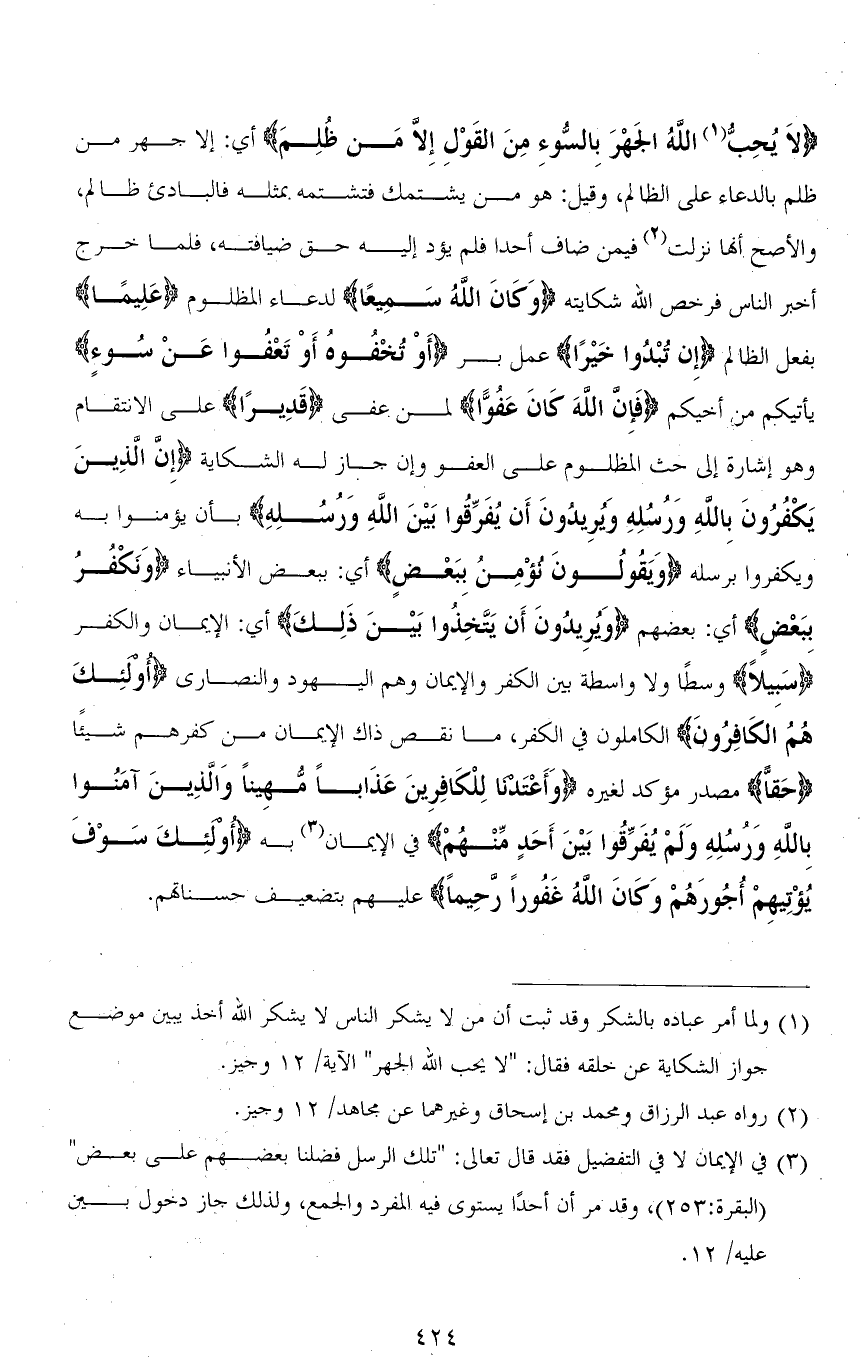 ﴿لاَ يُحِبُّ(١) اللَّهُ الجَهْرَ بِالسُّوءِ مِنَ القَوْلِ إِلاَّ مَن ظُلِمَ﴾ أي: إلا جهر من
ظلم بالدعاء على الظالم، وقيل: هو من يشتمك فتشتمه بمثله فالبادئ ظالم،
والأصح أنها نزلت(٢) فيمن ضاف أحدا فلم يؤد إليه حق ضيافته، فلما خرج
أخبر الناس فرخص الله شكايته ﴿وَكَانَ اللَّهُ سَمِيعًا﴾ لدعاء المظلوم ﴿عَلِيمًا﴾
بفعل الظالم ﴿إِن تُبْدُوا خَيْرًا﴾ عمل بر ﴿أَوْ تُخْفُوهُ أَوْ تَعْفُوا عَنْ سُوءٍ﴾
يأتيكم من أخيكم ﴿فَإِنَّ اللَّهَ كَانَ عَفُوًّا﴾ لمن عفى ﴿قَدِيرًا﴾ على الانتقام
وهو إشارة إلى حث المظلوم على العفو وإن جاز له الشكاية ﴿إِنَّ الَّذِينَ
يَكْفُرُونَ بِاللَّهِ وَرُسُلِهِ وَيُرِيدُونَ أَن يُفَرِّقُوا بَيْنَ اللَّهِ وَرُسُلِهِ﴾ بأن يؤمنوا به
ويكفروا برسله ﴿وَيَقُولُونَ نُؤْمِنُ بِبَعْضٍ﴾ أي: ببعض الأنبياء ﴿وَنَكْفُرُ
بِبَعْضٍ﴾ أي: بعضهم ﴿وَيُرِيدُونَ أَن يَتَّخِذُوا بَيْنَ ذَلِكَ﴾ أي: الإيمان والكفر
﴿سَبِيلاً﴾ وسطًا ولا واسطة بين الكفر والإيمان وهم اليهود والنصارى ﴿أُوْلَئِكَ
هُمُ الكَافِرُونَ﴾ الكاملون في الكفر، ما نقص ذاك الإيمان من كفرهم شيئًا
﴿حَقاًّ﴾ مصدر مؤكد لغيره ﴿وَأَعْتَدْنَا لِلْكَافِرِينَ عَذَاباً مُّهِيناً وَالَّذِينَ آمَنُوا
بِاللَّهِ وَرُسُلِهِ وَلَمْ يُفَرِّقُوا بَيْنَ أَحَدٍ مِّنْهُمْ﴾ في الإيمان(٣) به ﴿أُوْلَئِكَ سَوْفَ
يُؤْتِيهِمْ أُجُورَهُمْ وَكَانَ اللَّهُ غَفُوراً رَّحِيماً﴾ عليهم بتضعيف حسناتهم.
(١) ولما أمر عباده بالشكر وقد ثبت أن من لا يشكر الناس لا يشكر الله أخذ يبين موضع
جواز الشكاية عن خلقه فقال: "لا يحب الله الجهر" الآية/ ١٢ وجيز.
(٢) رواه عبد الرزاق ومحمد بن إسحاق وغيرهما عن مجاهد/ ١٢ وجيز.
(٣) في الإيمان لا في التفضيل فقد قال تعالى: "تلك الرسل فضلنا بعضهم على بعض"
(البقرة:٢٥٣)، وقد مر أن أحدًا يستوى فيه المفرد والجمع، ولذلك جاز دخول بين
عليه/ ١٢.
٤٢٤